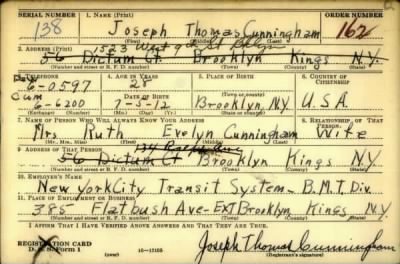 SERIAL NUMBER 1. NAME (Print) ORDER NUMBER
138 Joseph Thomas Cunningham 162
1523 West 9th St Bklyn
2. ADDRESS (Print)
56 Dictum Ct Brooklyn Kings N.Y.
(Number and street or R. F. D. number) (Town) (County) (State)
3. TELEPHONE 4. AGE IN YEARS 5. PLACE OF BIRTH 6. COUNTRY OF CITIZENSHIP
6-0597 28
DATE OF BIRTH Brooklyn, N.Y. U.S.A.
Cum
6-6200 7-5-12
(Exchange) (Number) (Mo.) (Day) (Yr.) (State or country)
7. NAME OF PERSON WHO WILL ALWAYS KNOW YOUR ADDRESS 8. RELATIONSHIP OF THAT PERSON
Mrs Ruth Evelyn Cunningham Wife
(Mr., Mrs., Miss) (First) (Middle) (Last)
9. ADDRESS OF THAT PERSON
56 Dictum Ct Brooklyn Kings N.Y.
(Number and street or R. F. D. number) (Town) (County) (State)
10. EMPLOYER'S NAME
New York City Transit System - B.M.T. Div.
11. PLACE OF EMPLOYMENT OR BUSINESS
385 Flatbush Ave-EXT Brooklyn Kings N.Y.
(Number and street or R. F. D. number) (Town) (County) (State)
I AFFIRM THAT I HAVE VERIFIED ABOVE ANSWERS AND THAT THEY ARE TRUE.
REGISTRATION CARD
D. S. S. Form 1 (over) 16-17105 Joseph Thomas Cunningham
(Registrant's signature)